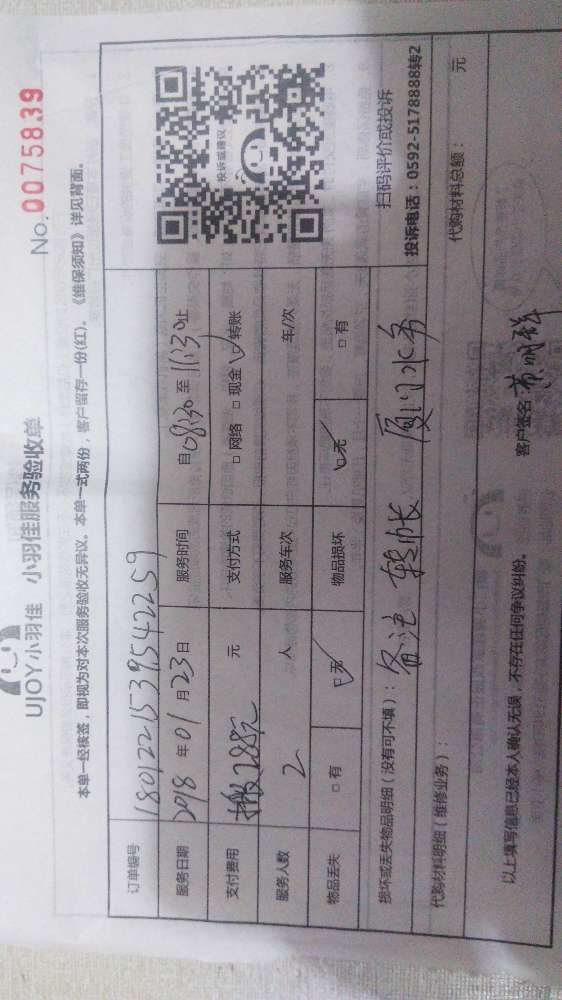 UJOY小羽佳 小羽佳服务验收单
No. 0075839
本单一经核签，即视为对本次服务验收无异议。本单一式两份，客户留存一份(红)。《维保须知》详见背面。
订单编号 1801221539542259
投诉或建议
服务日期 2018 年 01 月 23 日 服务时间 自 08:30 至 11:30 止
支付费用 285元 元 支付方式 □ 网络 □ 现金 □ 转账
服务人数 2 人 服务车次 车/次
物品丢失 □ 有 □ 无 物品损坏 □ 无 □ 有
扫码评价或投诉
投诉电话：0592-5178888转2
损坏或丢失物品明细（没有可不填）：备注 转帐 厦门水务
代购材料明细（维修业务）： 代购材料总额： 元
以上填写信息已经本人确认无误，不存在任何争议纠纷。 客户签名：黄明